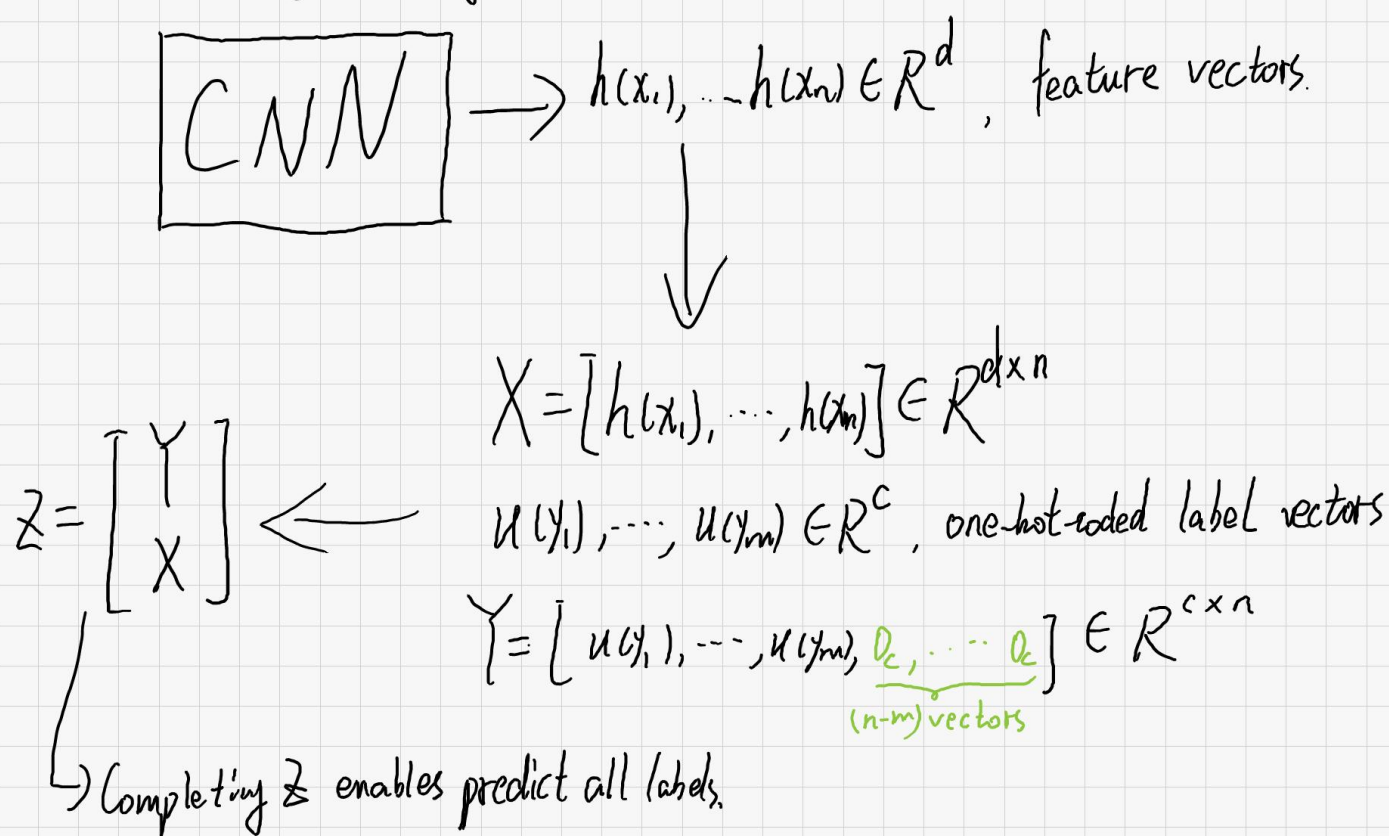 CNN → h(x₁), ... h(xₙ) ∈ R^d, feature vectors.
X = [h(x₁), ...., h(xₙ)] ∈ R^{d×n}
Z = [Y X] ← u(y₁), ...., u(yₘ) ∈ R^c, one-hot-coded label vectors
Y = [u(y₁), ---, u(yₘ), 0_c, .... 0_c] ∈ R^{c×n}
(n-m) vectors
↳ Completing Z enables predict all labels.